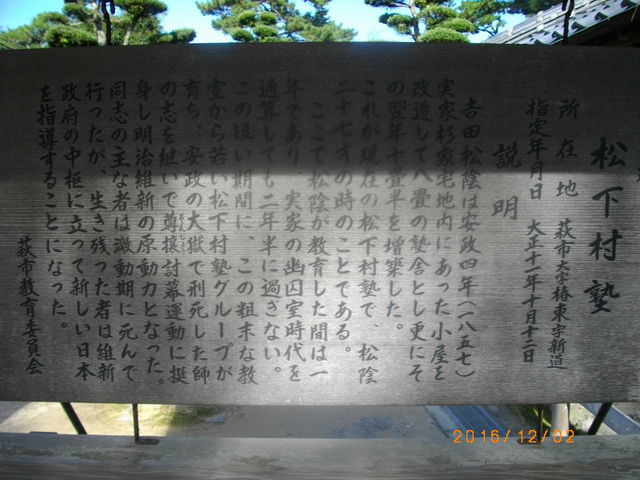 松下村塾
所在地 萩市大字椿東字新道
指定年月日 大正十一年十月十二日
説明
吉田松陰は安政四年(一八五七)
実家杉家宅地内にあった小屋を
改造して八畳の塾舎とし更にそ
の翌年十畳半を増築した。
これが現在の松下村塾で、松陰
二十七才の時のことである。
ここで松陰が教育した間は一
年であり、実家の幽囚室時代を
通算しても二年半に過ぎない。
この短い期間に、この粗末な教
室から若い松下村塾グループが
育ち、安政の大獄で刑死した師
の志を継いで尊攘討幕運動に挺
身し明治維新の原動力となった。
同志の主な者は激動期に死んで
行ったが、生き残った者は維新
政府の中枢に立って新しい日本
を指導することになった。
萩市教育委員会
2016/12/02